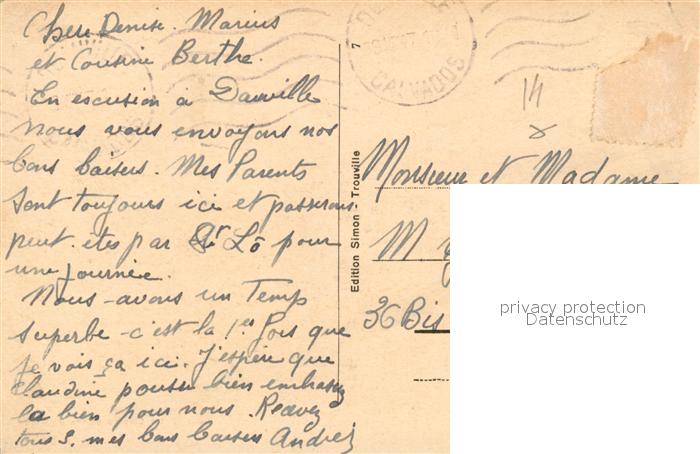 Chere Denise. Marius
et Cousine Berthe.
En escusion à Dauville
nous vous envoyons nos
bons baisers. Mes Parents
sont toujours ici et passerons
peut. etes par St Lô pour
une journée.
Nous-avons un Temps
superbe - c'est la 1er fois que
je vois ça ici. J'espère que
Claudine pousse bien embrassez
la bien pour nous. Recevez
tous 5. mes bons baisers André
7
CALVADOS
14
x
Edition Simon - Trouville
Monsieur et Madame
M
36 Bis
privacy protection
Datenschutz